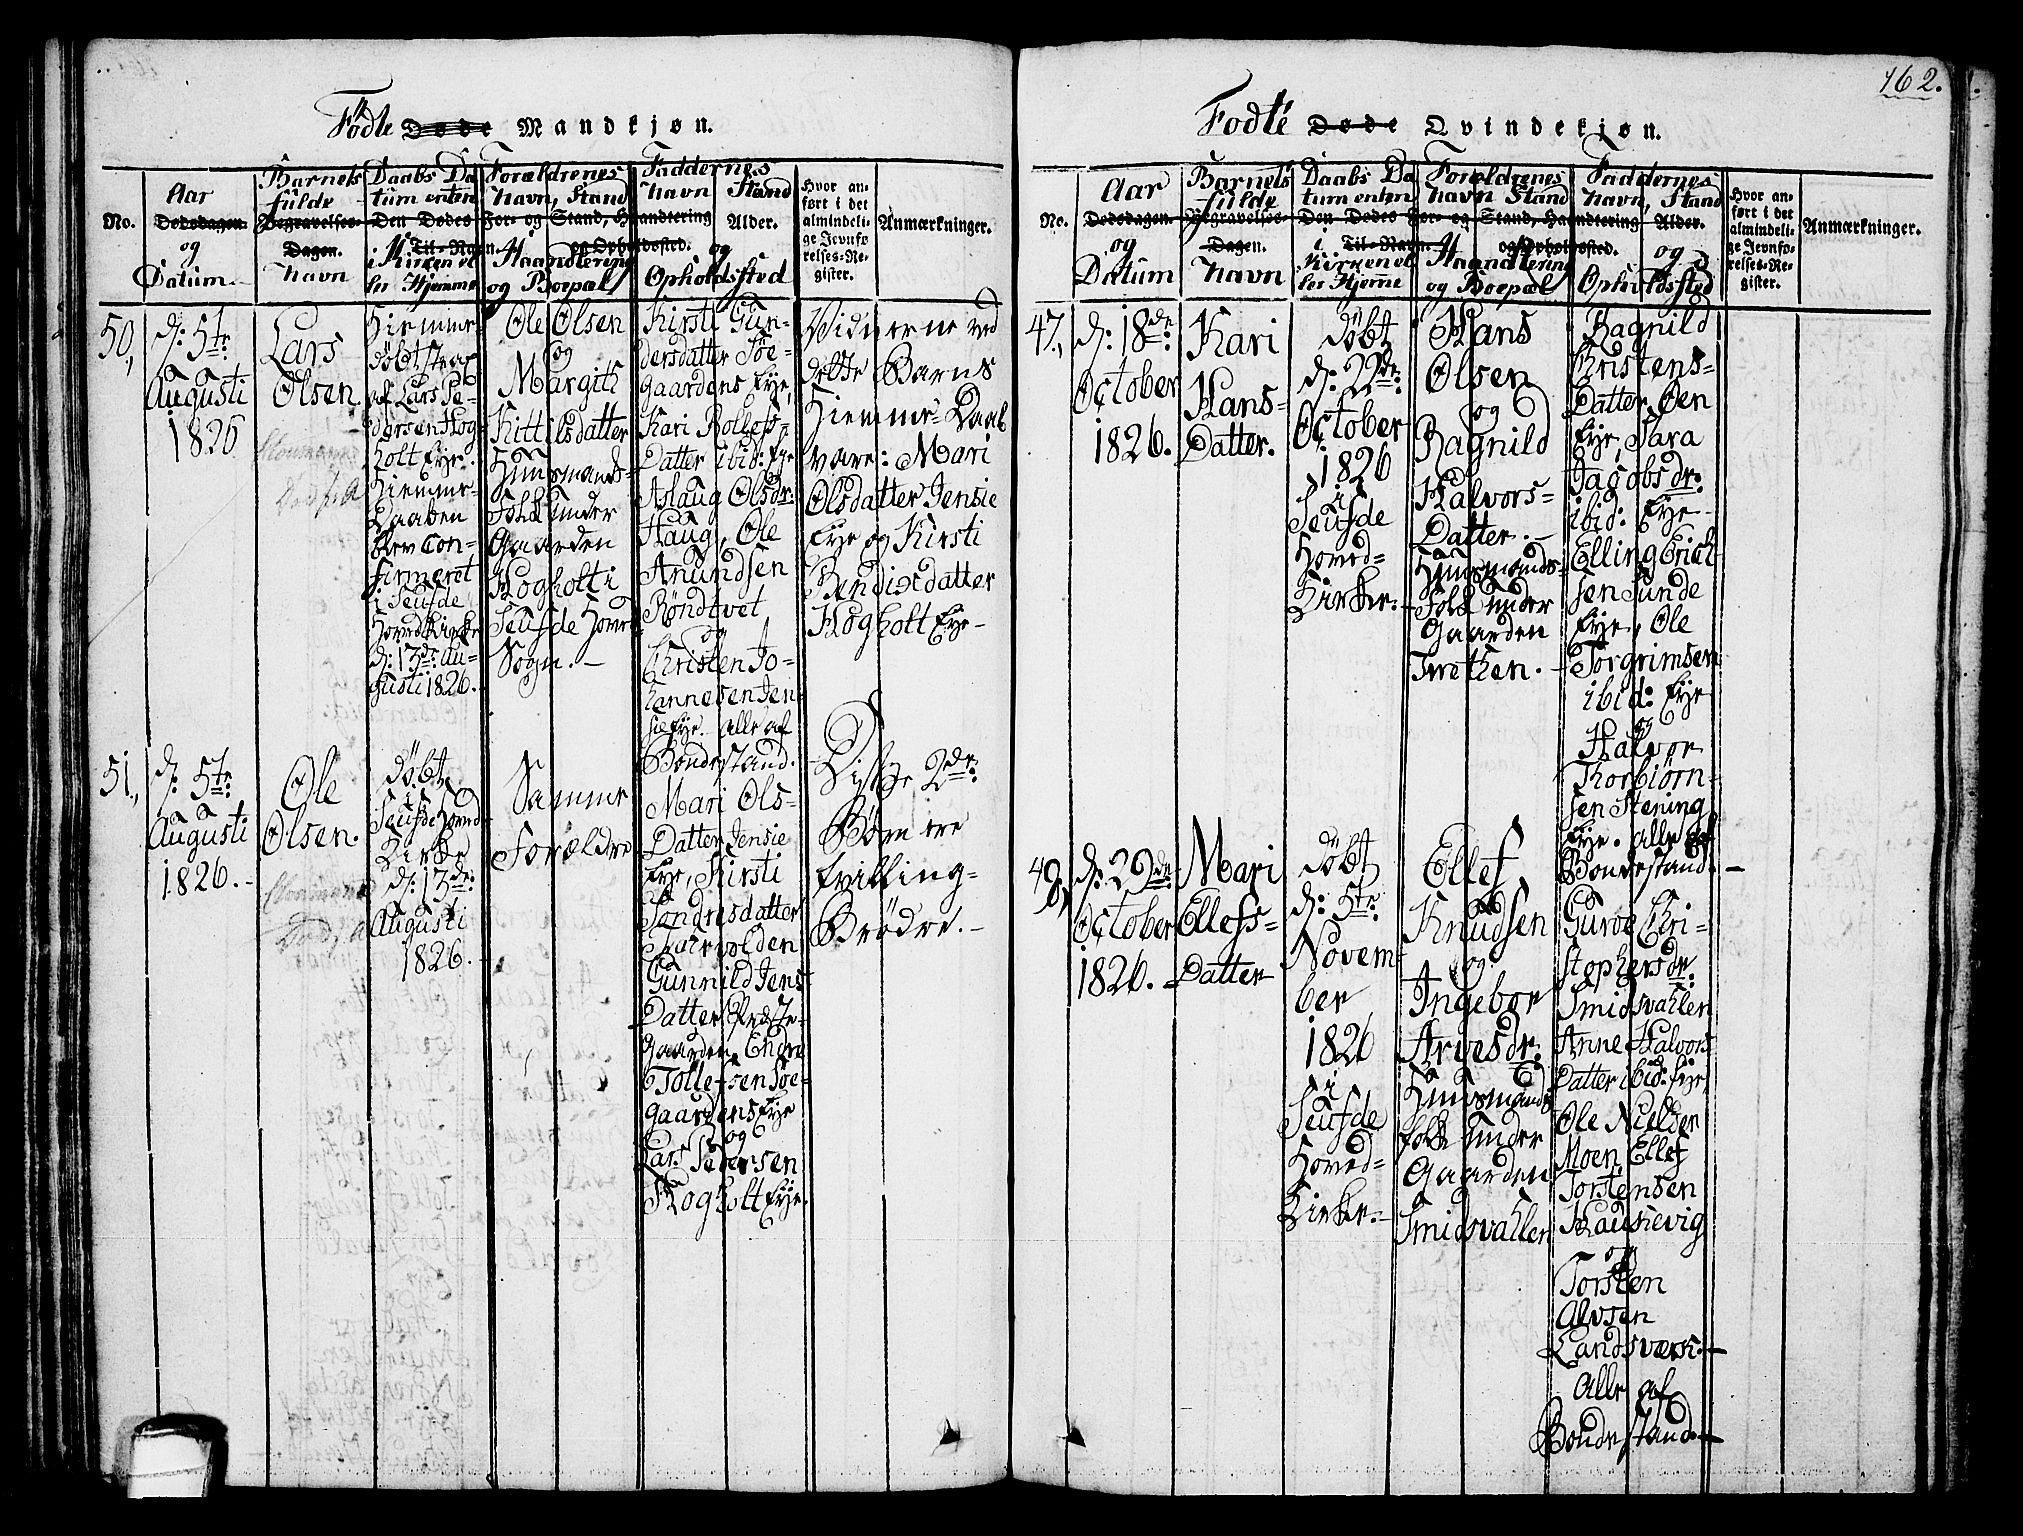 162.
Fødte Døde Mandkjøn.
No.
Aar
Dødsdagen
og
Datum
Barnets
fulde
Begravelses-
Dagen.
Navn
Daabs Da
tum enten
Den Dødes
i Kirken el
ler Hjemme
Forældrenes
Navn, Stand
For- og
Til-Navn.
Stand, Haandtering
og Opholdssted.
Haandtering
og Boepæl
Faddernes
Navn Stand
Alder.
og
Opholdssted
Hvor an-
ført i det
almindeli-
ge Jevnfø
relses-Re-
gister.
Anmærkninger.
50,
d: 5te
Augusti
1826
Lars
Olsen.
Hiemme-
døbt strax
af Lars Pe-
dersen Hog-
holt Eye.
Hiemme-
Daaben
blev Con-
firmeret
i Seufde
Hoved Kirke
d: 13de Au-
gusti 1826.
Ole Olsen
og
Margith
Kittilsdatter
Huusmands-
Folk under
Gaarden
Hogholt i
Seufde Hoved-
Sogn. -
Kirsti Gun-
dersdatter Søe-
Gaardens Eye,
Kari Rollefs-
Datter ibid: Eye
Aslaug Olsdr:
Haug, Ole
Anundsen
Røndtvet
og
Christen Jo-
hannesen Jen-
sie Eye. Alle af
Bondestand.
Vidnerne ved
dette Barns
Hiemme-Daab
vare: Mari
Olsdatter Jensie
Eye og Kirsti
Bendixdatter
Hogholt Eye -
51.,
d: 5te
Augusti
1826. -
Ole
Olsen.
døbt
i
Seufde Hoved-
Kirke
d: 13de
Augusti
1826. -
Samme
Forældre
Mari Ols-
Datter Jensie
Eye, Kirsti
Sondresdatter
Gunnild Jens
Datter Præste-
Gaarden, Endre
Tollefsen Søe-
gaardens Eye
og
Lars Pedersen
Hogholt Eye.
Disse 2de
Børn ere
tvilling-
Brødre. -
Fødte Døde Qvindekjøn.
No.
Aar
Dødsdagen
og
Datum
Barnets
fulde
Begravelses-
Dagen.
Navn
Daabs Da
tum enten
Den Dødes
i
Kirken el
ler Hjemme
Forældrenes
Navn Stand
For- og
Til-Navn.
Stand, Haandtering
og Opholdssted.
Haandtering
og Boepæl
Faddernes
Navn, Stand
Alder.
og
Opholdssted
Hvor an-
ført i det
almindeli-
ge Jevnfø-
relses-Re-
gister.
Anmærkninger.
47.,
d: 18de
October
1826.
Kari
Hans-
Datter.
døbt
d: 22de
October
1826
i
Seufde
Hoved-
Kirke. -
Hans
Olsen
og
Ragnild
Halvors-
Datter. -
Huusmands-
Folk under
Gaarden
Twethen. -
Ragnild
Kristens-
Datter Øen
Eye, Sara
Jagobsdr:
ibid: Eye
Elling Erich-
sen Sunde
Eye, Ole
Torgrimsen
ibid: Eye
og
Halvor
Thorbiørn-
sen Stening
Eye. Alle af
Bondestand. -
48,
d: 29de
October
1826. -
Mari
Ellefs-
Datter
døbt
d: 5te
Novem-
ber
1826
i
Seufde
Hoved-
Kirke. -
Ellef
Knudsen
og
Ingebor
Arvesdr.
Huusmands
folk under
Gaarden
Smidsvahlen
Guroe Chri-
stophersdr:
Smidsvahlen
Anne Halvors
Datter ibid: Eye,
Ole Nielder
Moen, Ellef
Torstensen
Hausievig
og
Torsten
Alvsen
Landsværk. -
Alle af
Bondestand. -